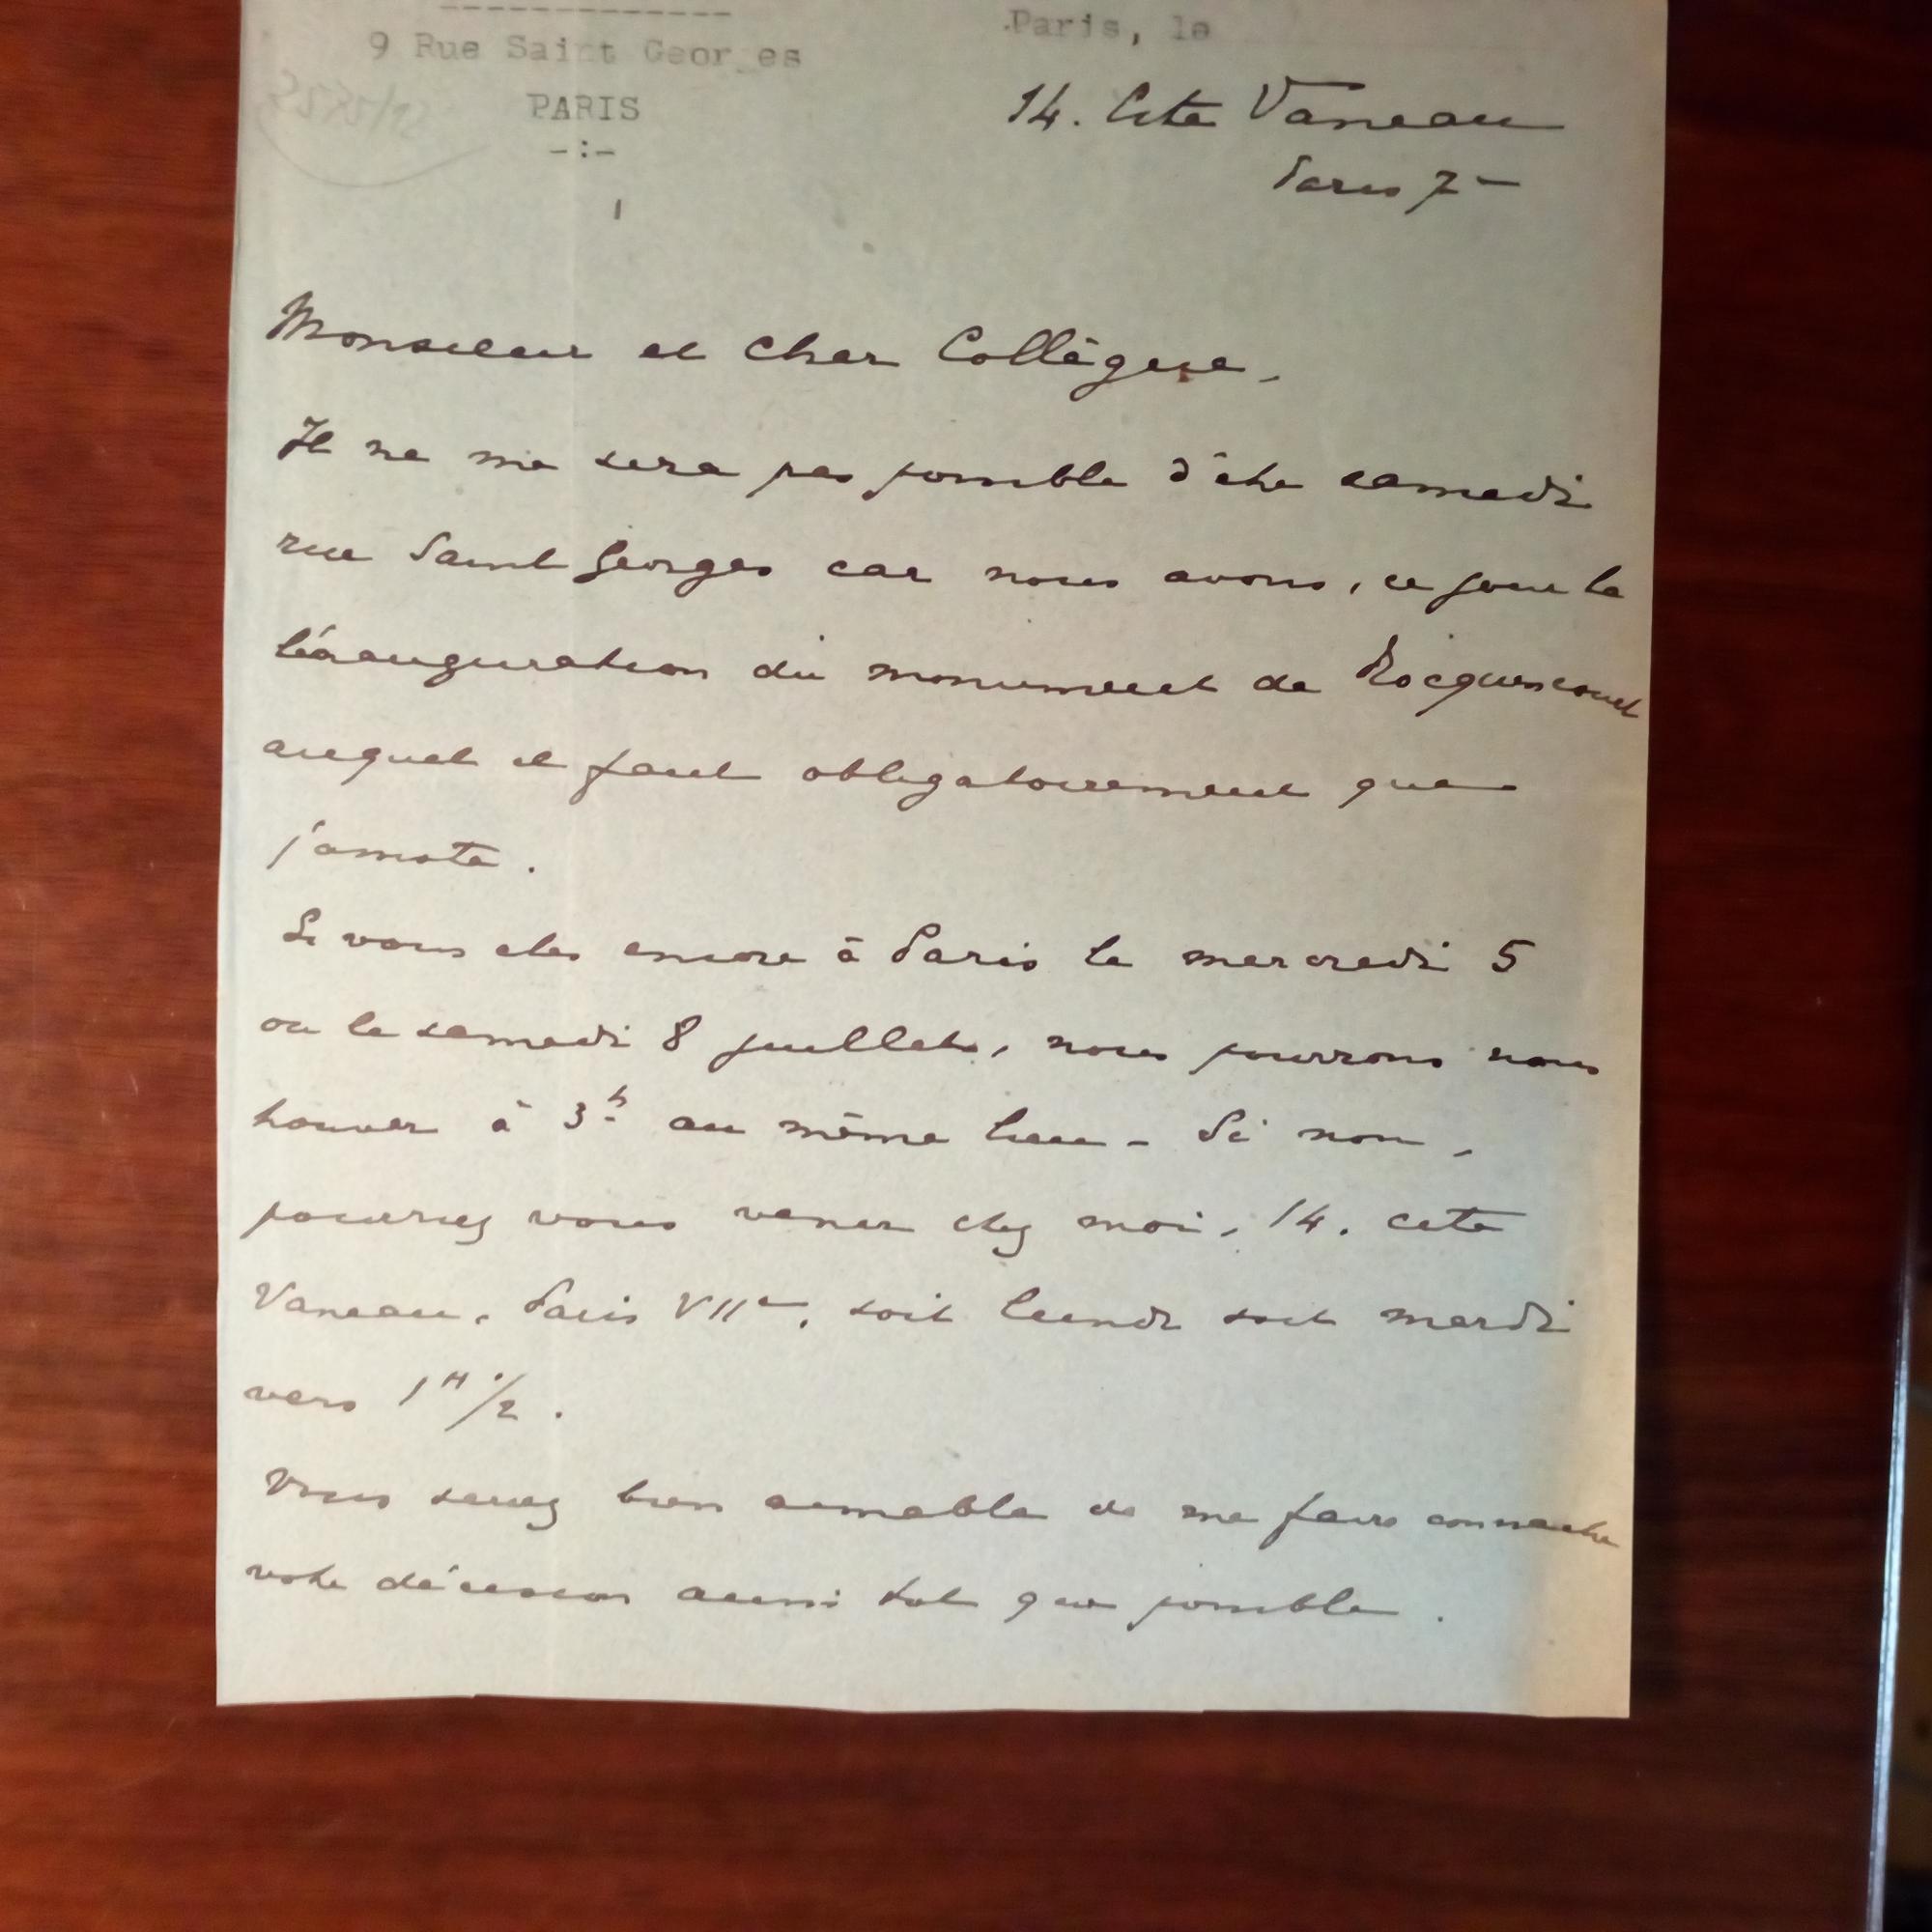 9 Rue Saint Geor es
Paris, le
PARIS
-:-
14. Cité Vaneau
Paris 7e
Monsieur et cher Collègue,
Il ne me sera pas possible d'être samedi
rue Saint Georges car nous avons, ce jour là
l'inauguration du monument de Rocquencourt
auquel il faut obligatoirement que
j'assiste.
Si vous êtes encore à Paris le mercredi 5
ou le samedi 8 juillet, nous pourrons nous
trouver à 3h au même lieu - Si non,
pourriez vous venir chez moi, 14. cité
Vaneau, Paris VIIe, soit lundi soit mardi
vers 1H 1/2.
Vous seriez bien aimable de me faire connaître
votre décision aussi tôt que possible.